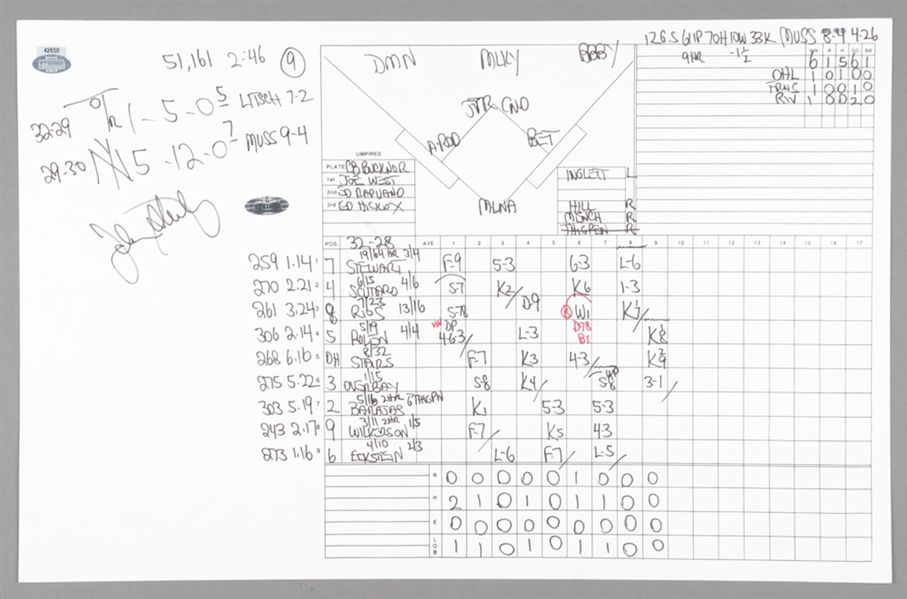 42650
51,161 2:46 9
12GS 61IP 70H 10W 33K MUSS 8-4 4-26
9HR -1½
32-29 TOR 1-5-0 5 LITSCH 7-2
29-30 NY 5-12-0 7 MUSS 9-4
DMN MLKY BBBY
JTR CNO
A-ROD BET
MLNA
6 1 5 6 1
OHL 1 0 1 0 0
RIV 1 0 0 2 0
UMPIRES
PLATE CB BUCKNOR
1st JOE WEST
2nd ED RAPUANO
3rd ED HICKOX
INGLETT L
HILL R
MENCH R
THIGPEN R
POS 32-28 AVE. 1 2 3 4 5 6 7 8 9 10 11 12 13 14 15 16 17
259 1.14 7 STEWART 3/4 F-9 5-3 6-3 L-6
270 2.21 4 6/15 SCUTARO 4/6 S-7 K2 K6 1-3
261 3.24 8 7/23 RIOS 13/16 S-78 D9 W1 K7
306 2.14 5 5/19 ROLEN 4/4 DP 463 L-3 D78 BI K8
268 6.10 DH 8/32 STAIRS F-7 K3 4-3 K9
275 5.22 3 1/15 OVERBAY S-8 K4 S8 3-1
303 5.19 2 5/16 2HR BARAJAS K1 5-3 5-3
243 2.17 9 3/11 2HR WILKERSON 1/5 F-7 K5 4-3
273 1.16 6 4/10 ECKSTEIN 2/3 L-6 F-7 L-5
R 0 0 0 0 0 1 0 0 0
H 2 1 0 1 0 1 1 0 0
E 0 0 0 0 0 0 0 0 0
LOB 1 1 0 1 0 1 1 0 0